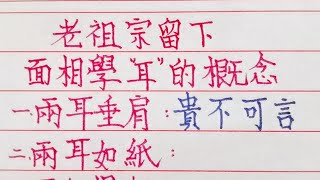 老祖宗留下
面相學“耳”的概念
一.兩耳垂肩:貴不可言
二.兩耳如紙: